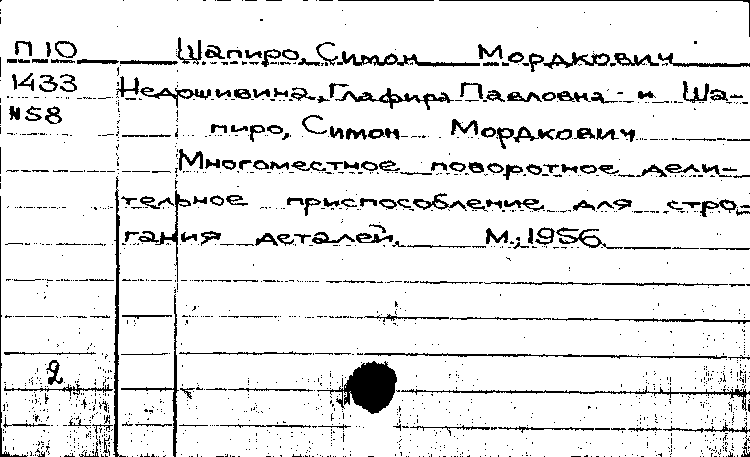 П 10 Шапиро, Симон Мордкович
1433 Недошивина, Глафира Павловна и Ша-
№58 пиро, Симон Мордкович
Многоместное поворотное дели-
тельное приспособление для стро-
гания деталей. М., 1956.
2